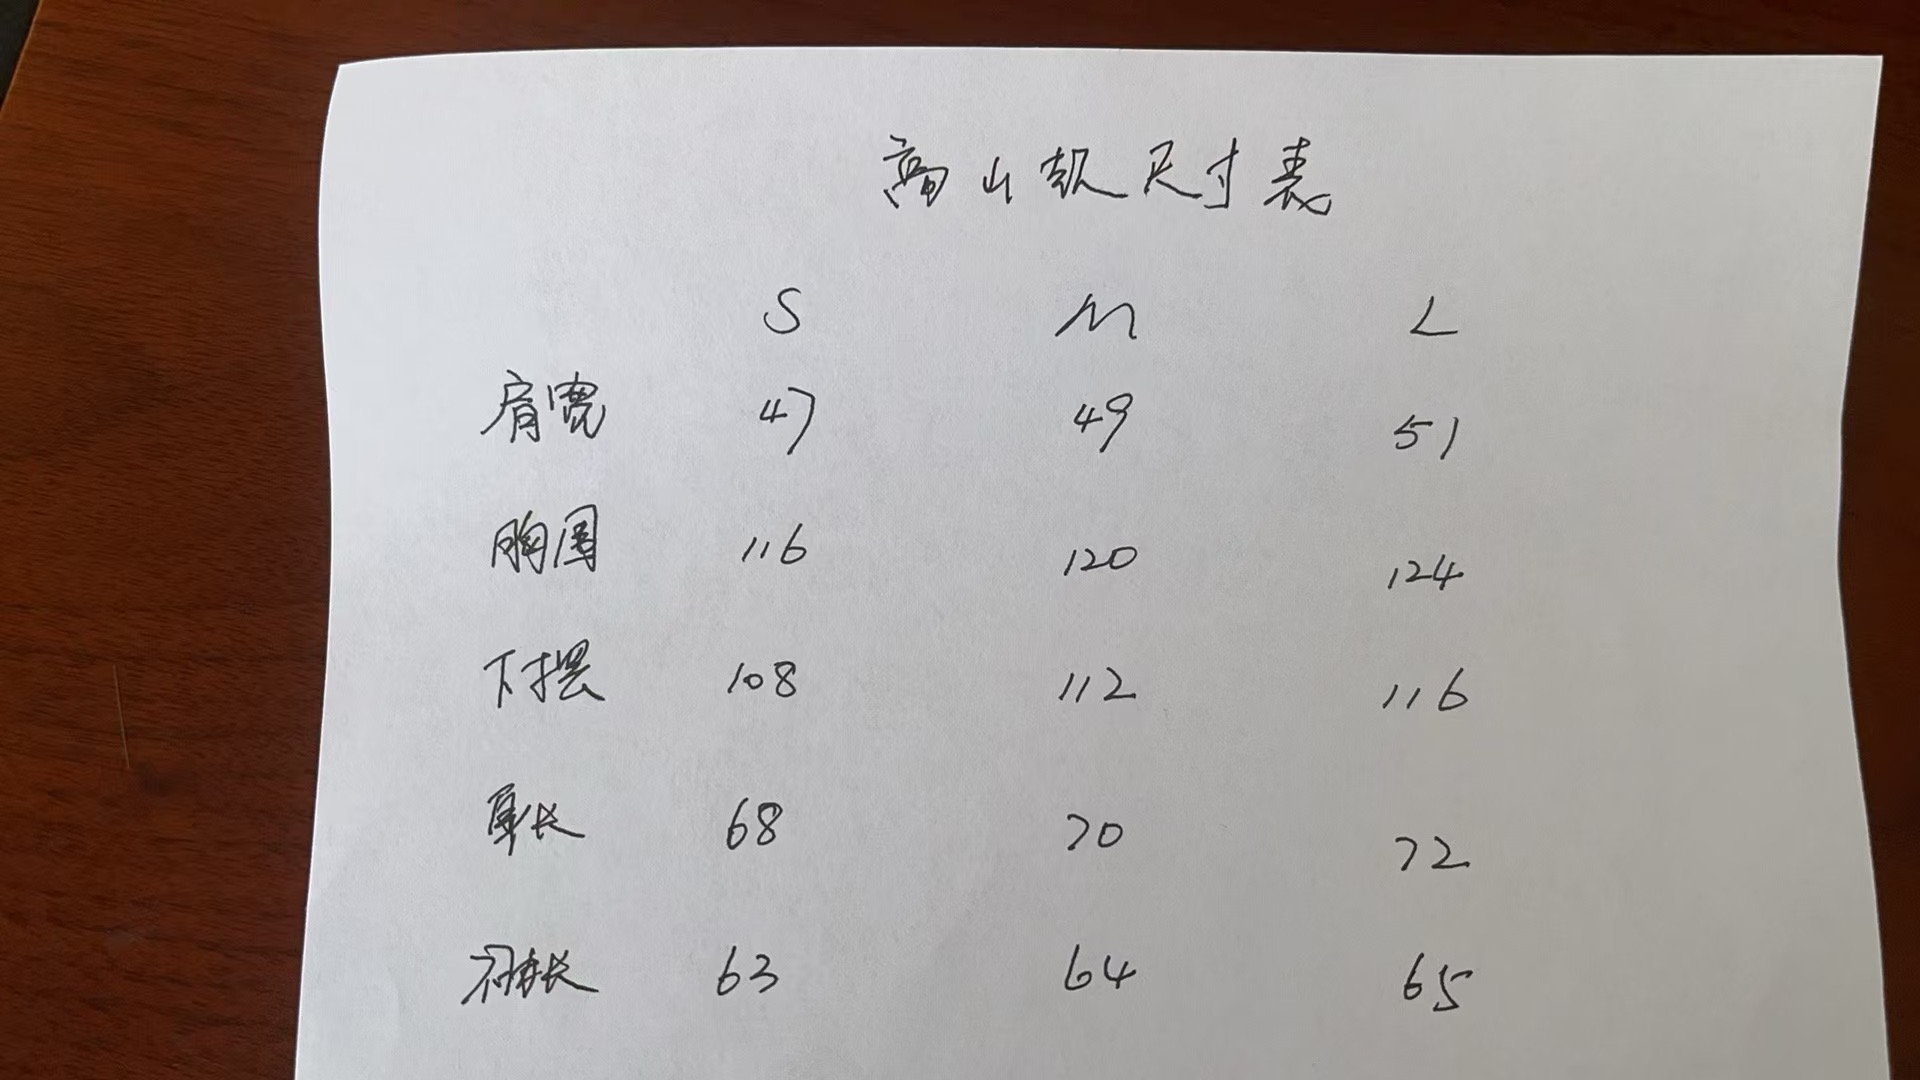 高山靓尺寸表
S M L
肩宽 47 49 51
胸围 116 120 124
下摆 108 112 116
肩长 68 70 72
袖长 63 64 65